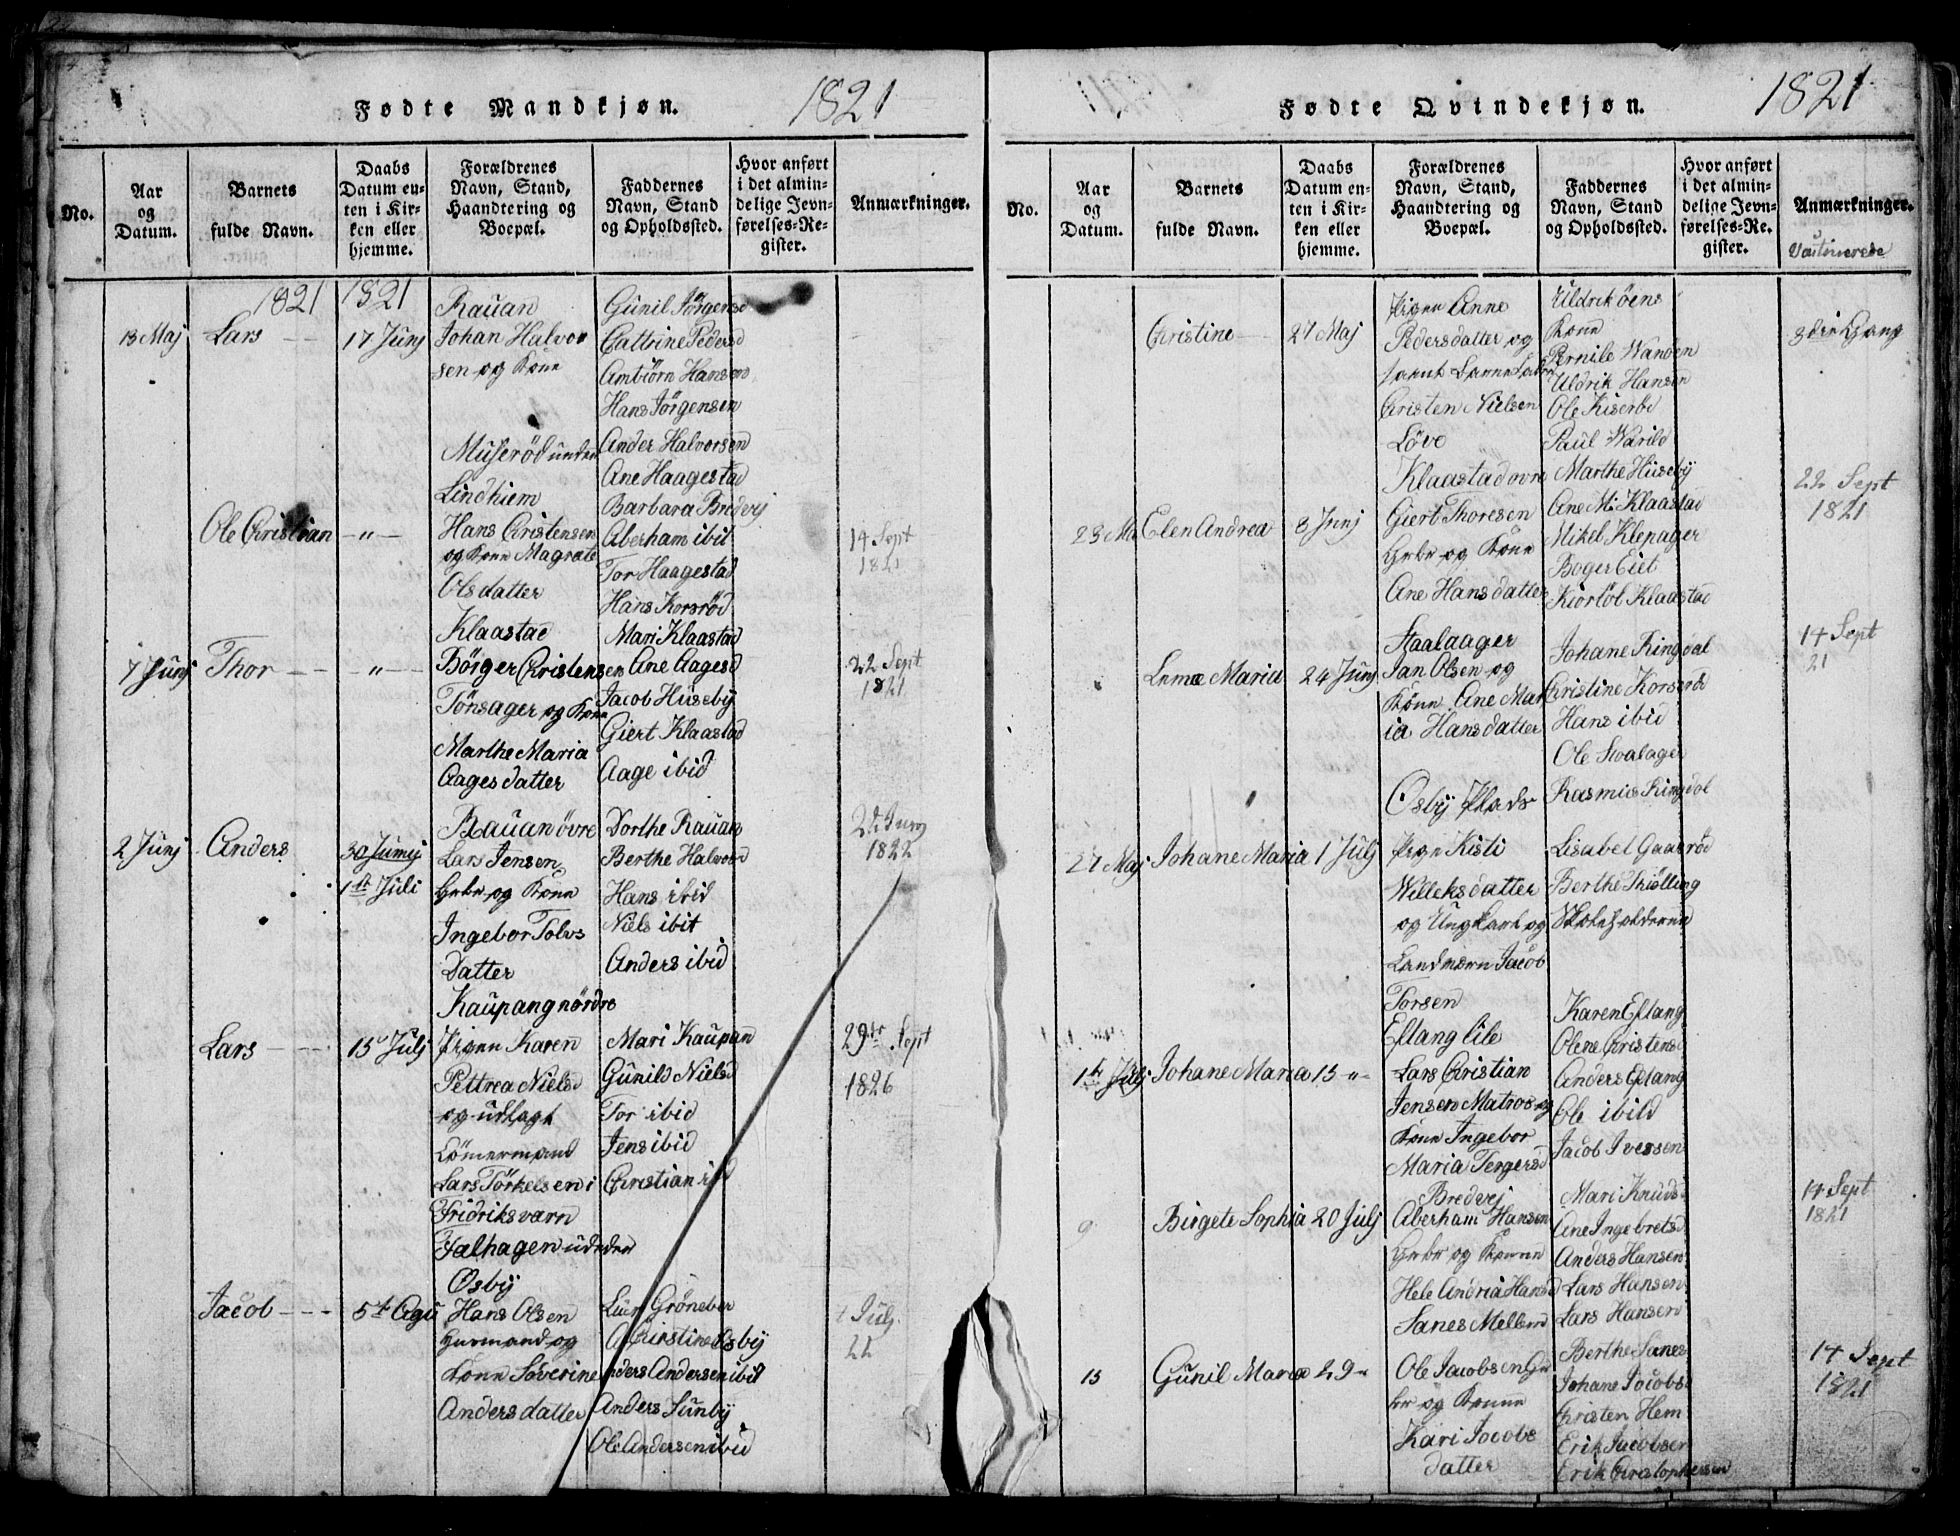 Fødte Mandkjøn.
1821
No.
Aar og Datum.
Barnets fulde Navn.
Daabs Datum enten i Kirken eller hjemme.
Forældrenes Navn, Stand, Haandtering og Boepæl.
Faddernes Navn, Stand og Opholdssted.
Hvor anført i det almindelige Jevnførelses-Register.
Anmærkninger.
1821 1821
13 Maj Lars 17 Junj
Rauan
Johan Halvor
sen og Kone
Gunil Jörgensd
Cattrine Pedersd
Ambiörn Hansen
Hans Jörgensen
Ander Halvorsen
Ole Christian -"-
Museröd under
Lindhiem
Hans Christensen
og Kone Magrete
Olsdatter
Ane Haagestad
Barbara Bredvej
Aberham ibit
Tor Haagestad
Hans Korsröd
14 Sept
1821
7 Junj Thor -"-
Klaastad
Börger Christensen
Tönsager og Kone
Marthe Maria
Aagesdatter
Mari Klaastad
Ane Aagesd
Jacob Huseby
Giert Klaastad
Aage ibid
22 Sept
1821
2 Junj Anders 30 Junij
1ste Juli
Rauan övre
Lars Jensen
Grbr og Kone
Ingebor Tolvs
Datter
Dorthe Rauan
Berthe Halvorsd
Hans ibid
Niels ibit
Anders ibid
1822
Lars 15 Julj
Kaupang nördre
Pigen Karen
Pettrea Nielsd
og udlagt
Lars Törkelsen i
Fridriksværn
Mari Kaupan
Gunild Nielsd
Tor ibid
Jens ibid
Christian ibid
29de Sept
1826
Jacob 5te Agu
Falhagen
Osby
Hans Olsen
Huusmand og
Kone Severine
Andersdatter
Gröneber
Christine Osby
Anders Andersen ibit
Anders Sunby
Ole Andersen ibid
Julj
22
Fødte Qvindekjøn.
1821
No.
Aar og Datum.
Barnets fulde Navn.
Daabs Datum enten i Kirken eller hjemme.
Forældrenes Navn, Stand, Haandtering og Boepæl.
Faddernes Navn, Stand og Opholdssted.
Hvor anført i det almindelige Jevnførelses-Register.
Anmærkninger.
Christine 27 Maj
Pigen Anne
Pedersdatter og
Christen Nielsen
Löve
Uldrik
Kone
Pernile
Uldrik Hansen
Ole Kiseröd
Paul
23 Ma Elen Andrea 3 Junj
Klaastad ovre
Giert Thoresen
Grbr og Kone
Ane Hansdatter
Marthe Huseby
Ane M. Klaastad
Mikel Klepager
Kiorlöl Klaastad
22 Sept
1821
Maria 24 Junj
Staalaager
Jan Olsen og
Kone Ane Mar
ia Hansdatter
Johane Ringdal
Christine Korseröd
Hans ibid
Ole Stoalager
Rasmus Ringdol
14 Sept
21
27 Maj Johane Maria 1 Julj
Osby Plads
Pigen Kisti
Willeksdatter
og Ungkarl og
Landværn Jacob
Torsen
Lisabel Gaaseröd
Berthe Skiölling
1te Julj Johane Maria 15 "
Eftang lile
Lars Christian
Jensen Matros og
Kone Ingebor
Maria
Karen Eftang
Olene Christensd
Anders Eftang
Ole ibid
Jacob Iversen
9 Birgete Sophia 20 Julj
Bredvej
Aberham Hansen
Grbr og Kone
Hele Andria Hansd
Mari Knuds
Ane Ingebretsd
Anders Hansen
Lars Hansen
Lars Hansen
14 Sept
1821
15 Gunil Maria 29
Sanes Mellem
Ole Jacobsen Gr
br og Kone
Kari Jacobs
datter
Berthe Sanes
Johane Jocobsd
Christen Hem
Erik Jacobsen
Erik Christophersen
14 Sept
1821